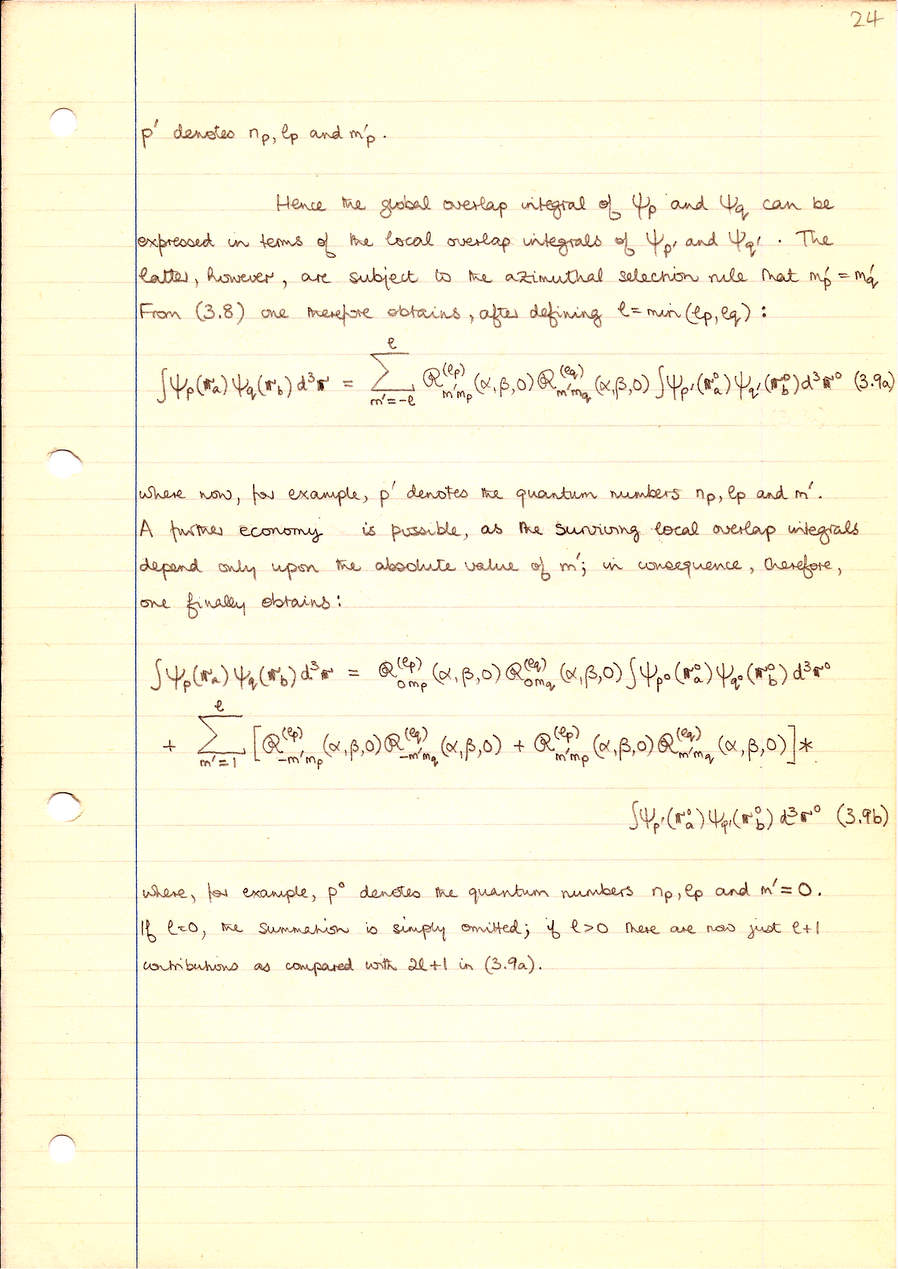 24
p′ denotes nₚ, ℓₚ and m′ₚ.
Hence the global overlap integral of ψₚ and ψ_q can be
expressed in terms of the local overlap integrals of ψₚ′ and ψ_q′. The
latter, however, are subject to the azimuthal selection rule that m′ₚ = m′_q
From (3.8) one therefore obtains, after defining ℓ = min(ℓₚ, ℓ_q):
∫ψₚ(𝐫ₐ)ψ_q(𝐫_b)d³𝐫 = ∑_{m′=-ℓ}^{ℓ} ℛ^{(ℓₚ)}_{m′mₚ}(α,β,0)ℛ^{(ℓ_q)}_{m′m_q}(α,β,0)∫ψₚ′(𝐫ₐ⁰)ψ_q′(𝐫_b⁰)d³𝐫⁰ (3.9a)
where now, for example, p′ denotes the quantum numbers nₚ, ℓₚ and m′.
A further economy is possible, as the surviving local overlap integrals
depend only upon the absolute value of m′; in consequence, therefore,
one finally obtains:
∫ψₚ(𝐫ₐ)ψ_q(𝐫_b)d³𝐫 = ℛ^{(ℓₚ)}_{0mₚ}(α,β,0)ℛ^{(ℓ_q)}_{0m_q}(α,β,0)∫ψₚ⁰(𝐫ₐ⁰)ψ_q⁰(𝐫_b⁰)d³𝐫⁰
+ ∑_{m′=1}^{ℓ} [ℛ^{(ℓₚ)}_{-m′mₚ}(α,β,0)ℛ^{(ℓ_q)}_{-m′m_q}(α,β,0) + ℛ^{(ℓₚ)}_{m′mₚ}(α,β,0)ℛ^{(ℓ_q)}_{m′m_q}(α,β,0)]*
∫ψₚ′(𝐫ₐ⁰)ψ_q′(𝐫_b⁰)d³𝐫⁰ (3.9b)
where, for example, p⁰ denotes the quantum numbers nₚ, ℓₚ and m′ = 0.
If ℓ=0, the summation is simply omitted; if ℓ>0 there are now just ℓ+1
contributions as compared with 2ℓ+1 in (3.9a).